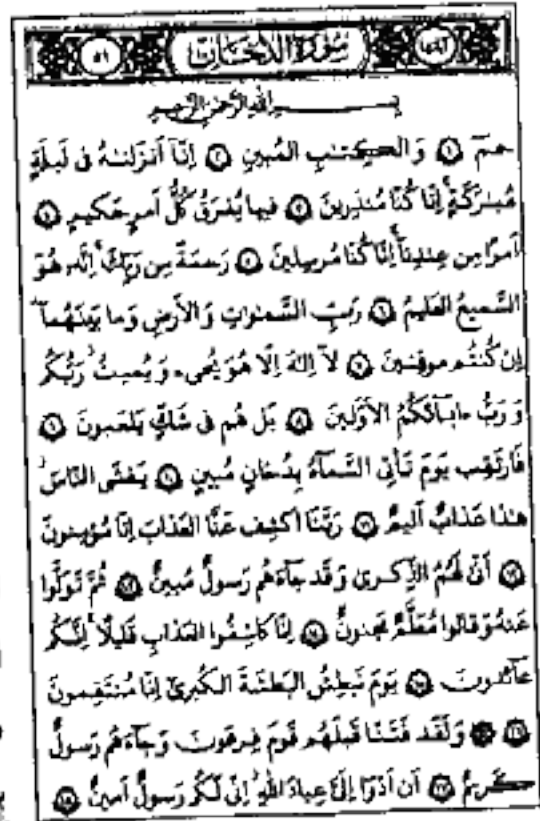 سورة الدخان
بسم الله الرحمن الرحيم
حمٓ ١ وَالْكِتَٰبِ الْمُبِينِ ٢ إِنَّآ أَنزَلْنَٰهُ فِى لَيْلَةٍ
مُّبَٰرَكَةٍ إِنَّا كُنَّا مُنذِرِينَ ٣ فِيهَا يُفْرَقُ كُلُّ أَمْرٍ حَكِيمٍ ٤
أَمْرًا مِّنْ عِندِنَآ إِنَّا كُنَّا مُرْسِلِينَ ٥ رَحْمَةً مِّن رَّبِّكَ إِنَّهُۥ هُوَ
السَّمِيعُ الْعَلِيمُ ٦ رَبِّ السَّمَٰوَٰتِ وَالْأَرْضِ وَمَا بَيْنَهُمَآ
إِن كُنتُم مُّوقِنِينَ ٧ لَآ إِلَٰهَ إِلَّا هُوَ يُحْىِۦ وَيُمِيتُ رَبُّكُمْ
وَرَبُّ ءَابَآئِكُمُ الْأَوَّلِينَ ٨ بَلْ هُمْ فِى شَكٍّ يَلْعَبُونَ ٩
فَارْتَقِبْ يَوْمَ تَأْتِى السَّمَآءُ بِدُخَانٍ مُّبِينٍ ١٠ يَغْشَى النَّاسَ
هَٰذَا عَذَابٌ أَلِيمٌ ١١ رَّبَّنَا اكْشِفْ عَنَّا الْعَذَابَ إِنَّا مُؤْمِنُونَ
١٢ أَنَّىٰ لَهُمُ الذِّكْرَىٰ وَقَدْ جَآءَهُمْ رَسُولٌ مُّبِينٌ ١٣ ثُمَّ تَوَلَّوْا
عَنْهُ وَقَالُوا مُعَلَّمٌ مَّجْنُونٌ ١٤ إِنَّا كَاشِفُوا الْعَذَابِ قَلِيلًا إِنَّكُمْ
عَآئِدُونَ ١٥ يَوْمَ نَبْطِشُ الْبَطْشَةَ الْكُبْرَىٰٓ إِنَّا مُنتَقِمُونَ
١٦ وَلَقَدْ فَتَنَّا قَبْلَهُمْ قَوْمَ فِرْعَوْنَ وَجَآءَهُمْ رَسُولٌ
كَرِيمٌ ١٧ أَنْ أَدُّوٓا إِلَىَّ عِبَادَ اللَّهِ إِنِّى لَكُمْ رَسُولٌ أَمِينٌ ١٨